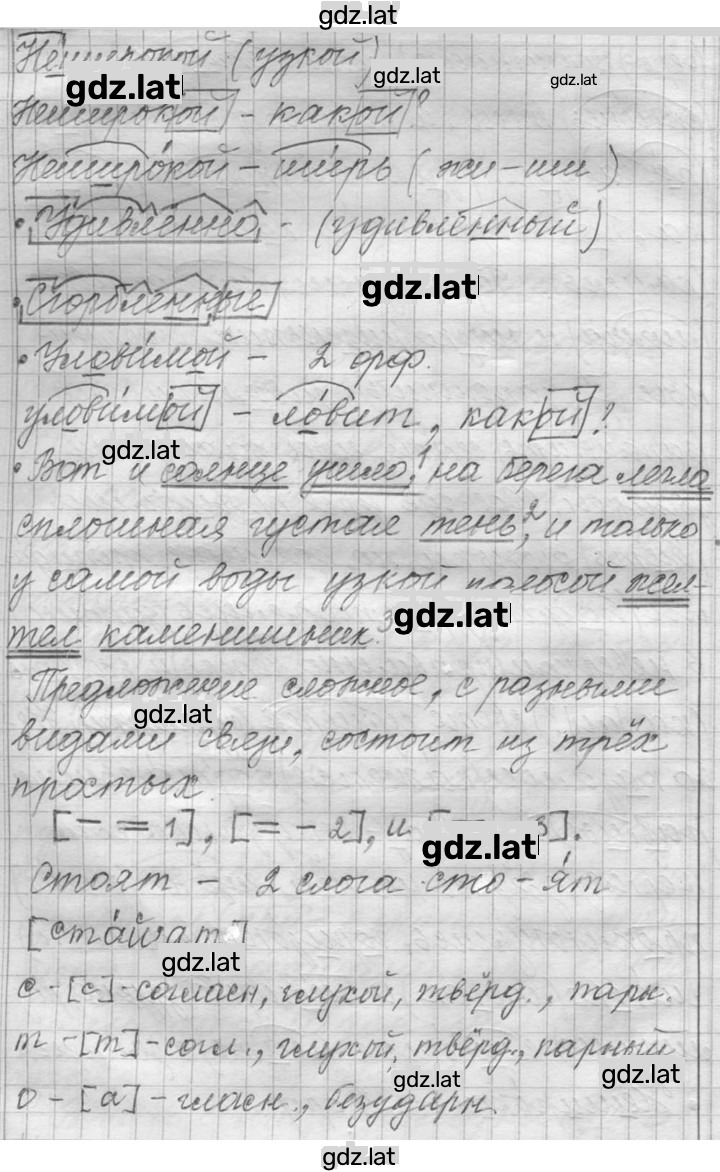 gdz.lat
Неширокой (узкой)
gdz.lat gdz.lat gdz.lat
Неширокой - какой?
Неширо́кой - ши́рь (жи-ши)
• Удивлённо - (удивленный)
gdz.lat
• Сгорбленные
• Улови́мой - 2 орф.
улови́мой - ло́вит, какой?
gdz.lat
• Вот и солнце ушло,¹ на берега легла
сплошная густая тень,² и только
у самой воды узкой полосой жел-
gdz.lat
тел каменишник.³
Предложение сложное, с разными
gdz.lat
видами связи, состоит из трёх
простых.
[- = 1], [= - 2], и [= - 3].
gdz.lat
Стоят - 2 слога сто-я́т
[ста́йат]
gdz.lat
с - [с] - согласн, глухой, твёрд., парн.
т - [т] - согл., глухой, твёрд., парный
gdz.lat gdz.lat
о - [а] - гласн., безударн.
gdz.lat